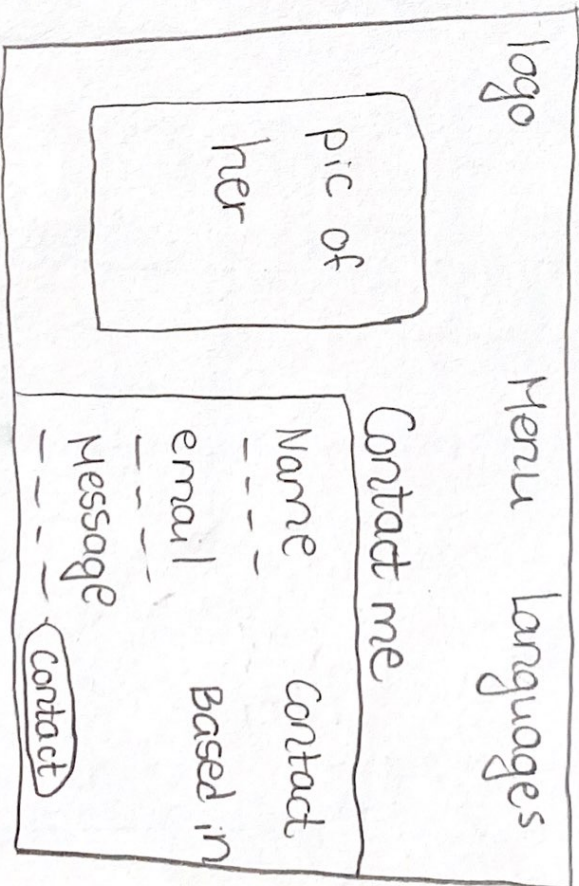 logo Menu Languages
pic of
her
Contact me
Name Contact
email Based in
Message
Contact